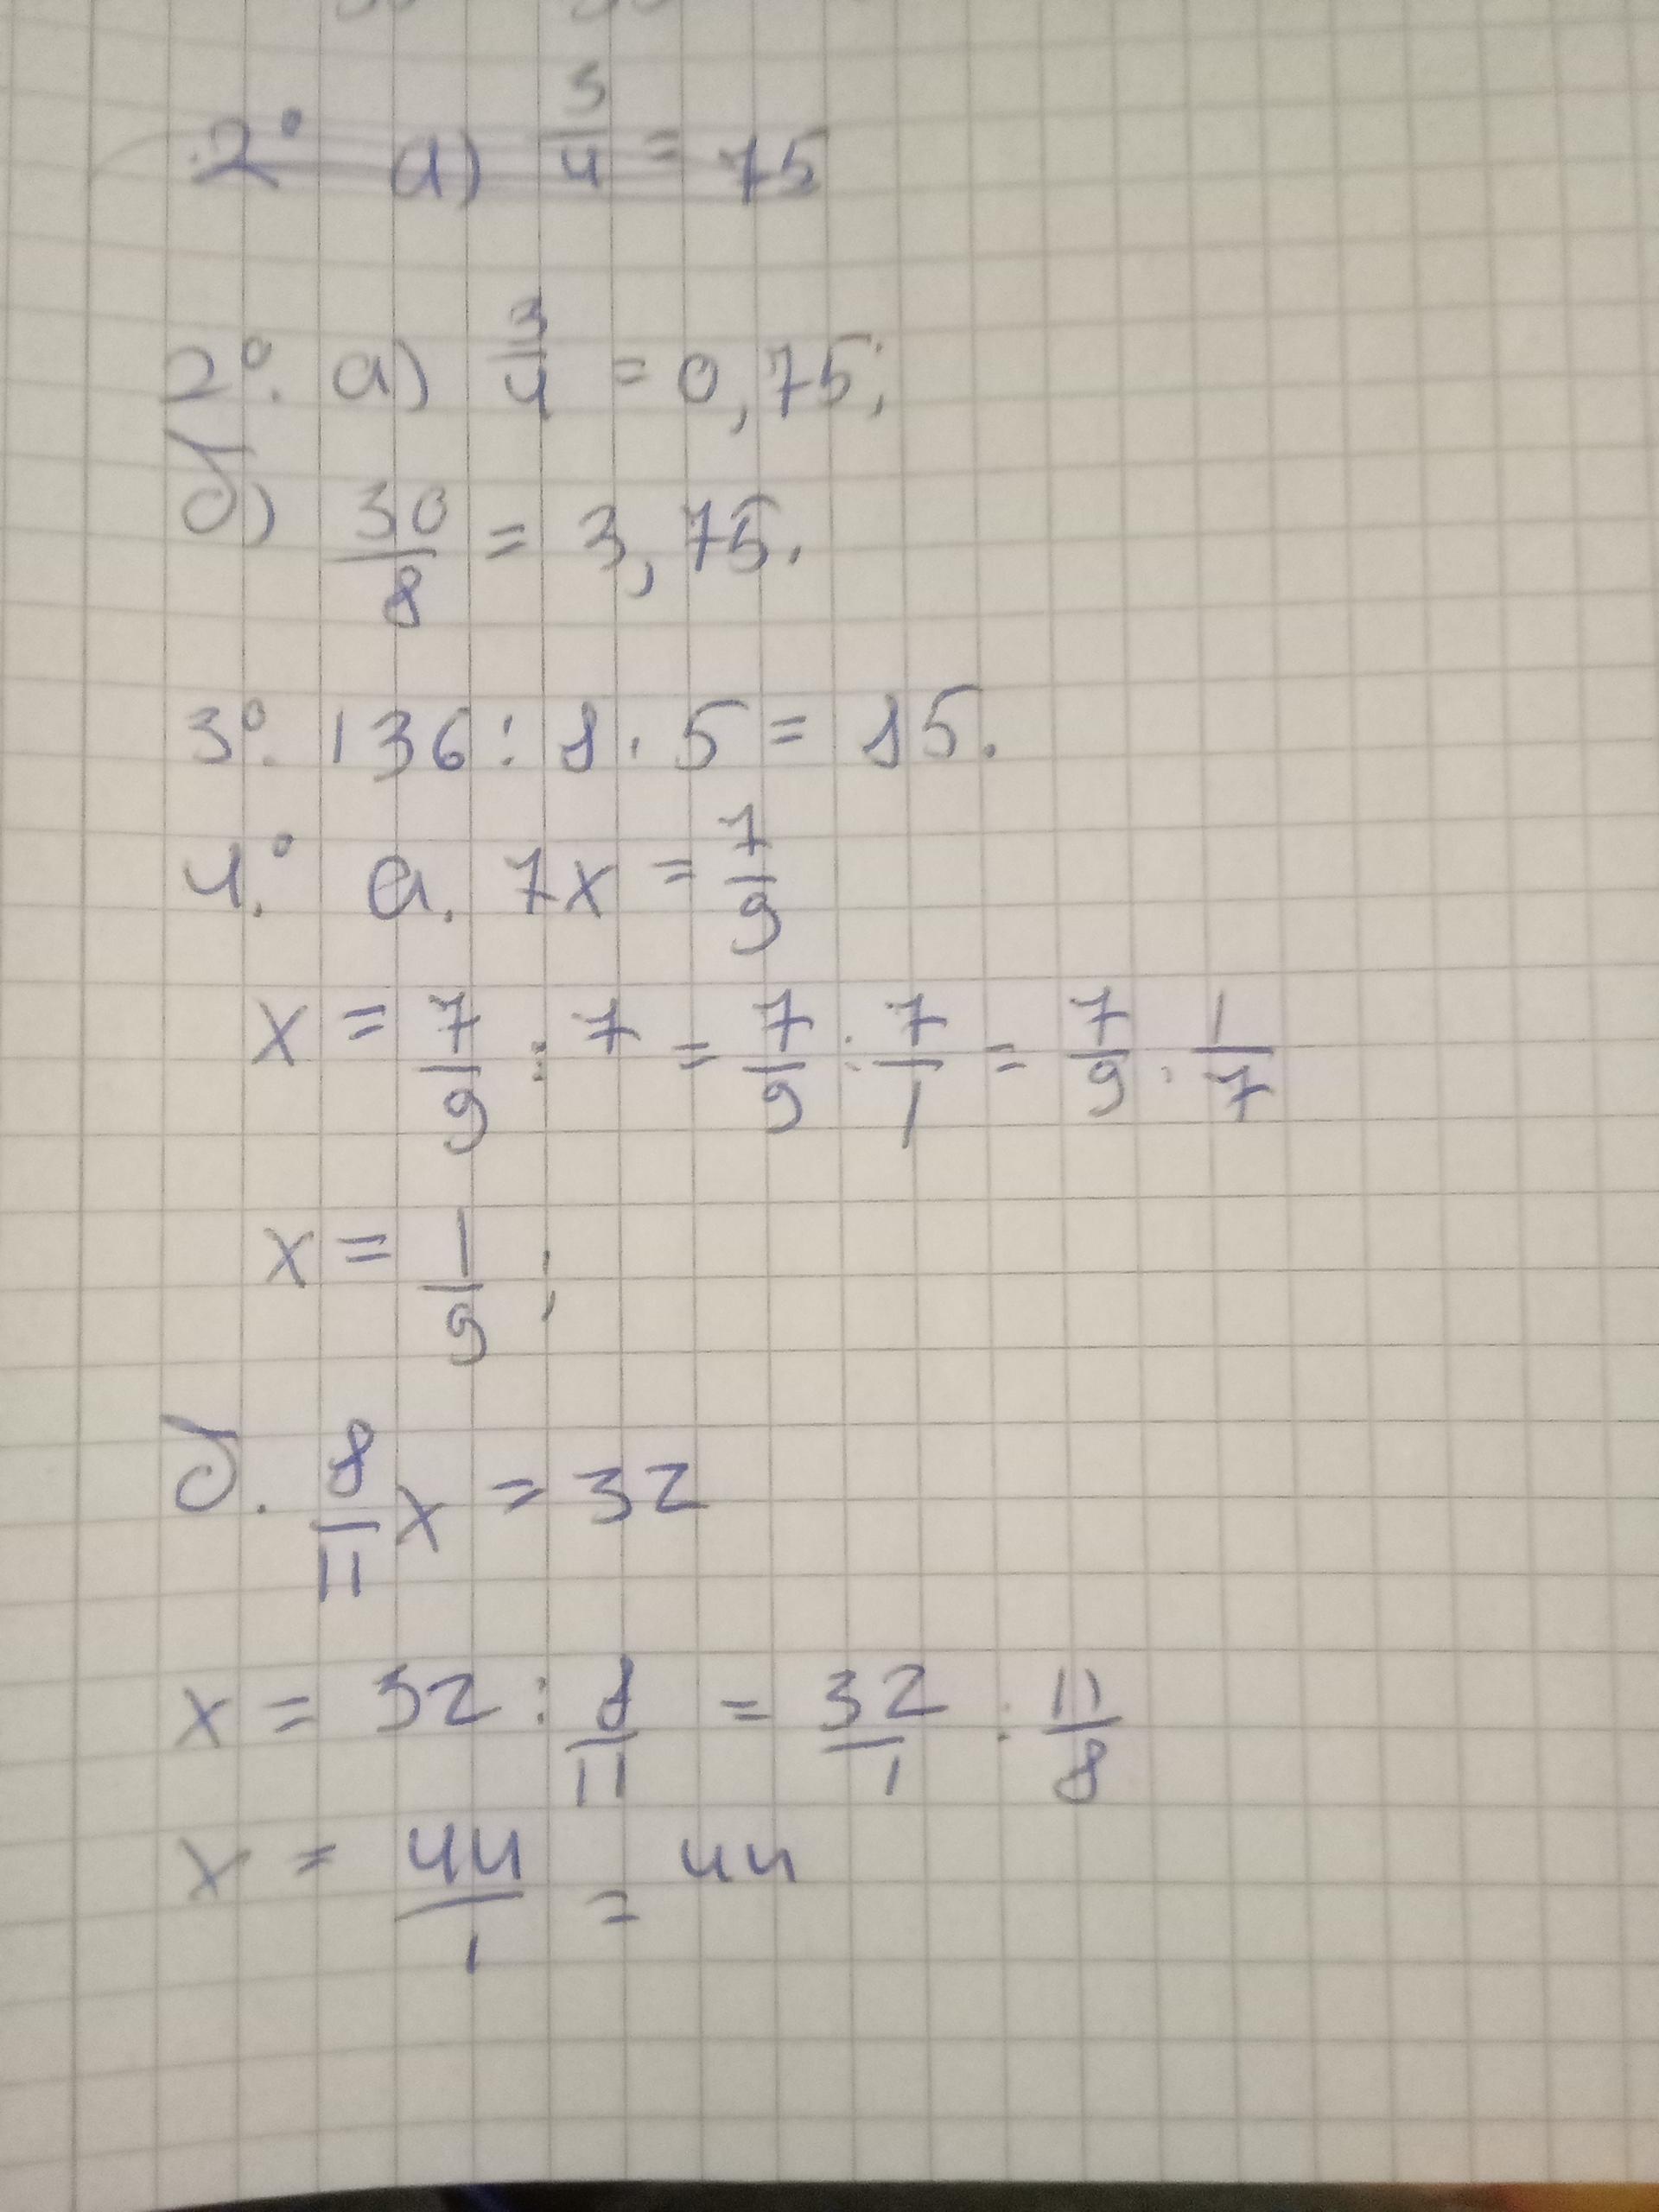 2° а) 3/4 = 75
2°. а) 3/4 = 0,75;
б) 30/8 = 3,75.
3°. 136 : 8 · 5 = 85.
4.° а. 7x = 7/9
x = 7/9 : 7 = 7/9 : 7/1 = 7/9 · 1/7
x = 1/9 ;
б. 8/11 x = 32
x = 32 : 8/11 = 32/1 : 11/8
x = 44/1 = 44